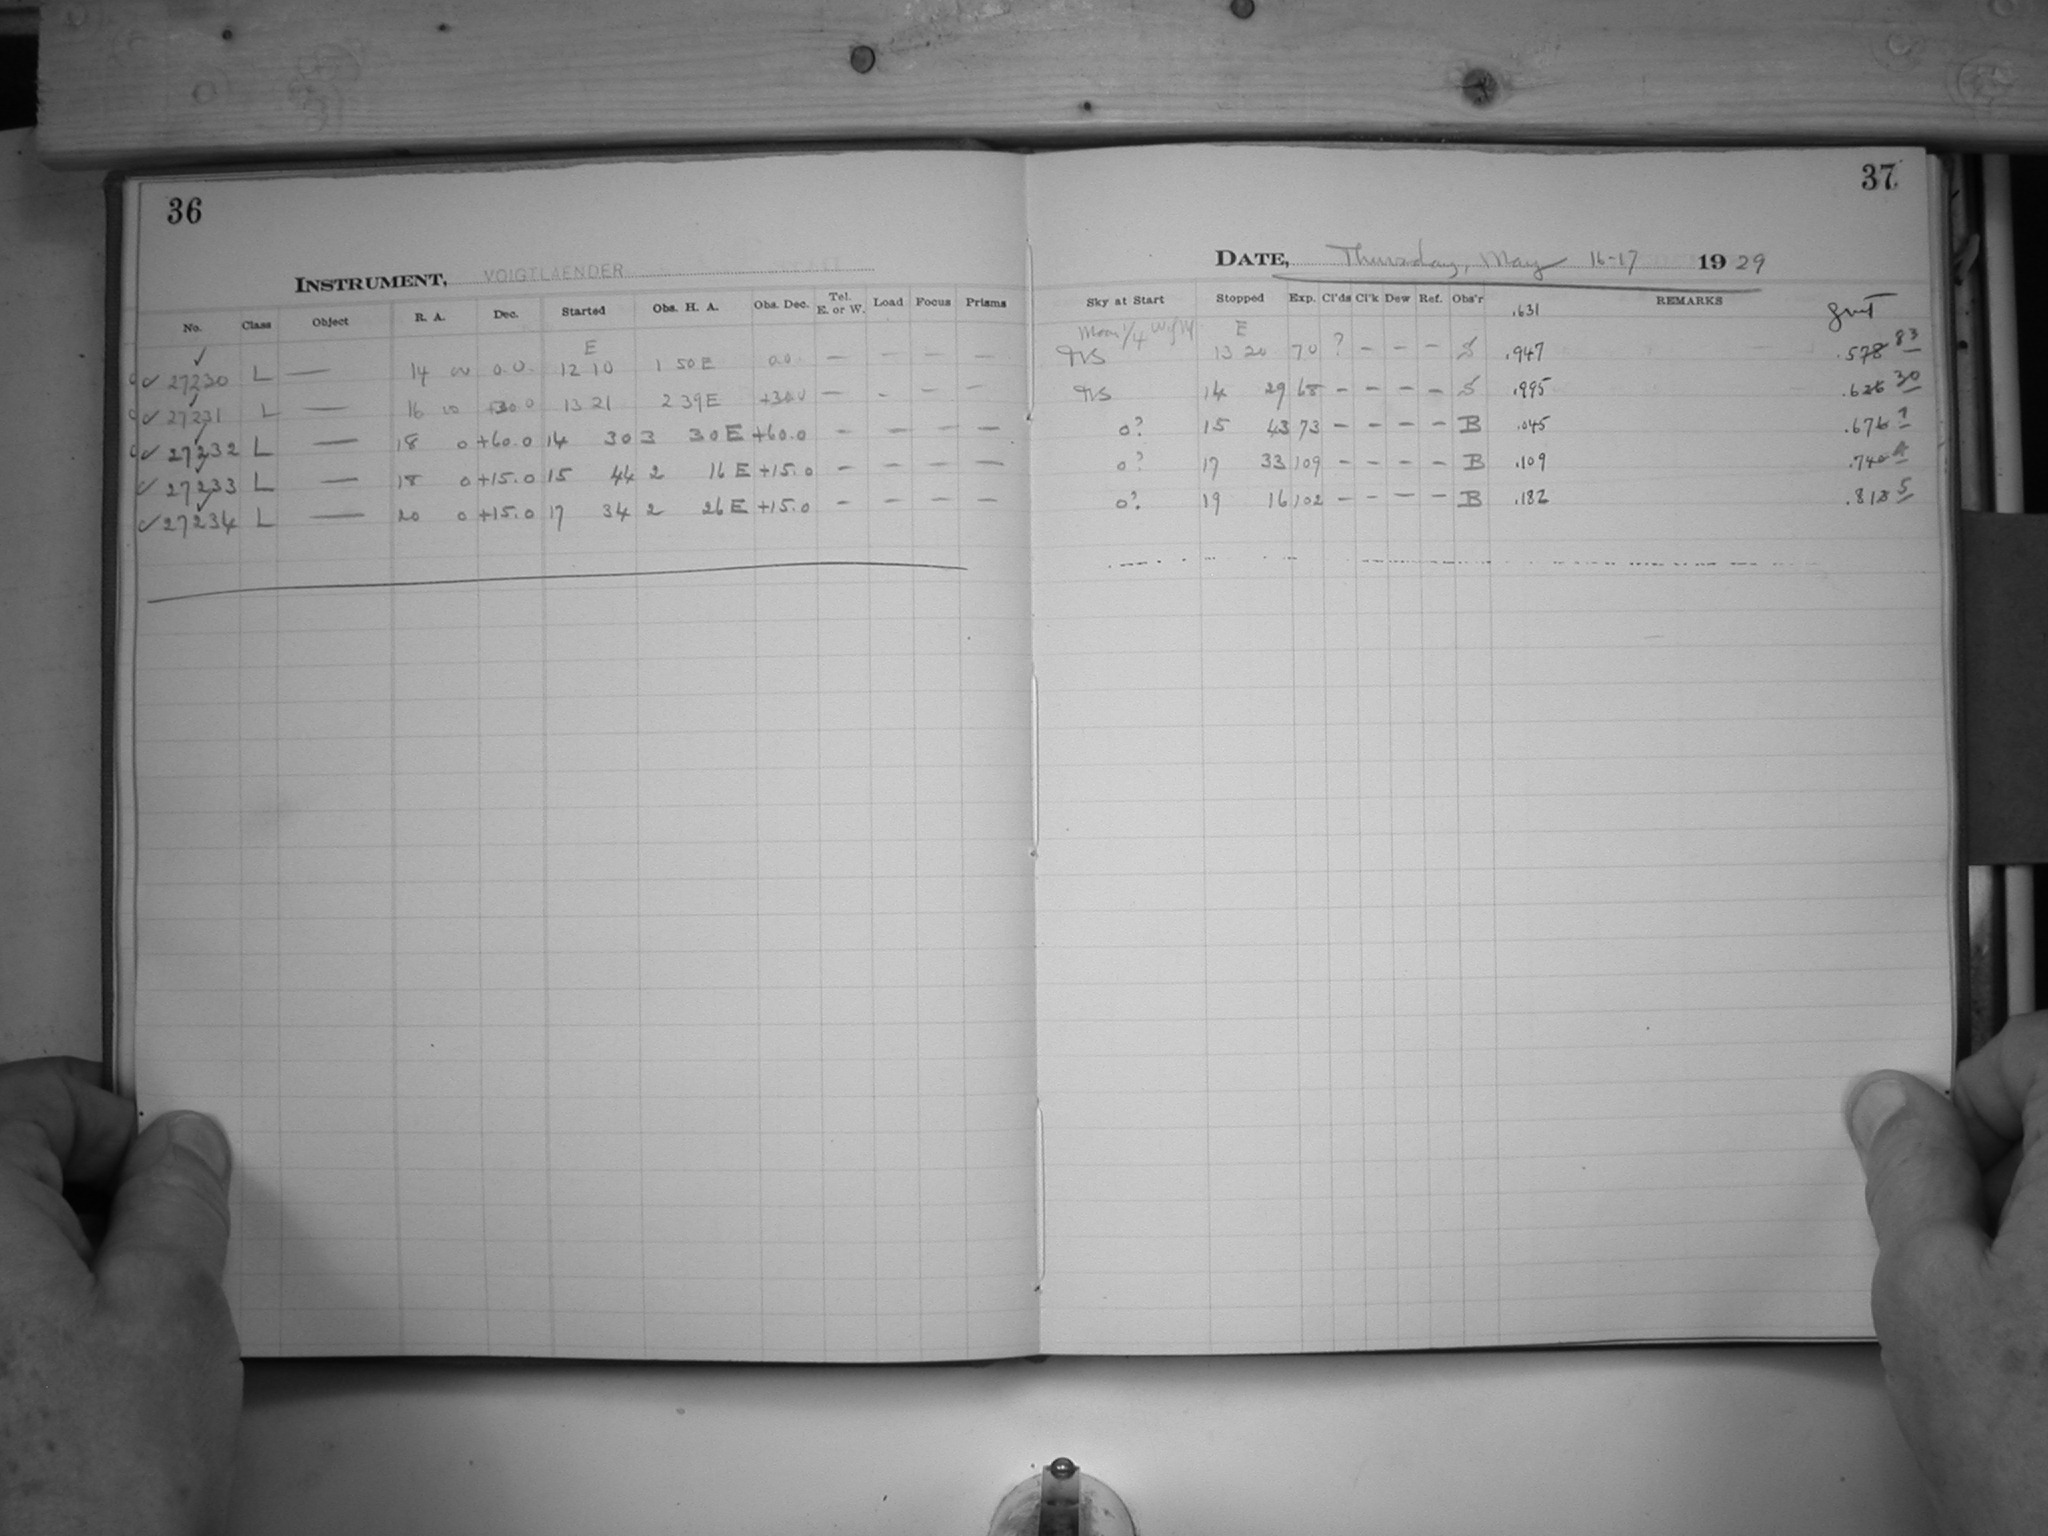 36
INSTRUMENT, VOIGTLAENDER
No. Class Object R. A. Dec. Started Obs. H. A. Obs. Dec. Tel. E. or W. Load Focus Prisms
E
✓ 27230 L — 14 00 0.0 12 10 1 50 E 0.0 — — — —
✓ 27231 L — 16 00 +30.0 13 21 2 39 E +30.0 — - — —
✓ 27232 L — 18 0 +60.0 14 30 3 30 E +60.0 — — — —
✓ 27233 L — 18 0 +15.0 15 44 2 16 E +15.0 — — — —
✓ 27234 L — 20 0 +15.0 17 34 2 26 E +15.0 — — — —
37
DATE, Thursday, May 16-17 1929
Sky at Start Stopped Exp. Cl'ds Cl'k Dew Ref. Obs'r REMARKS
.631 GMT
Moon 1/4 E
13 20 70 ? — — — S .947 .578 83
14 29 68 — — — — S .995 .626 30
0? 15 43 73 — — — — B .045 .676
0? 17 33 109 — — — — B .109 .740
0? 19 16 102 — — — — B .182 .813 5